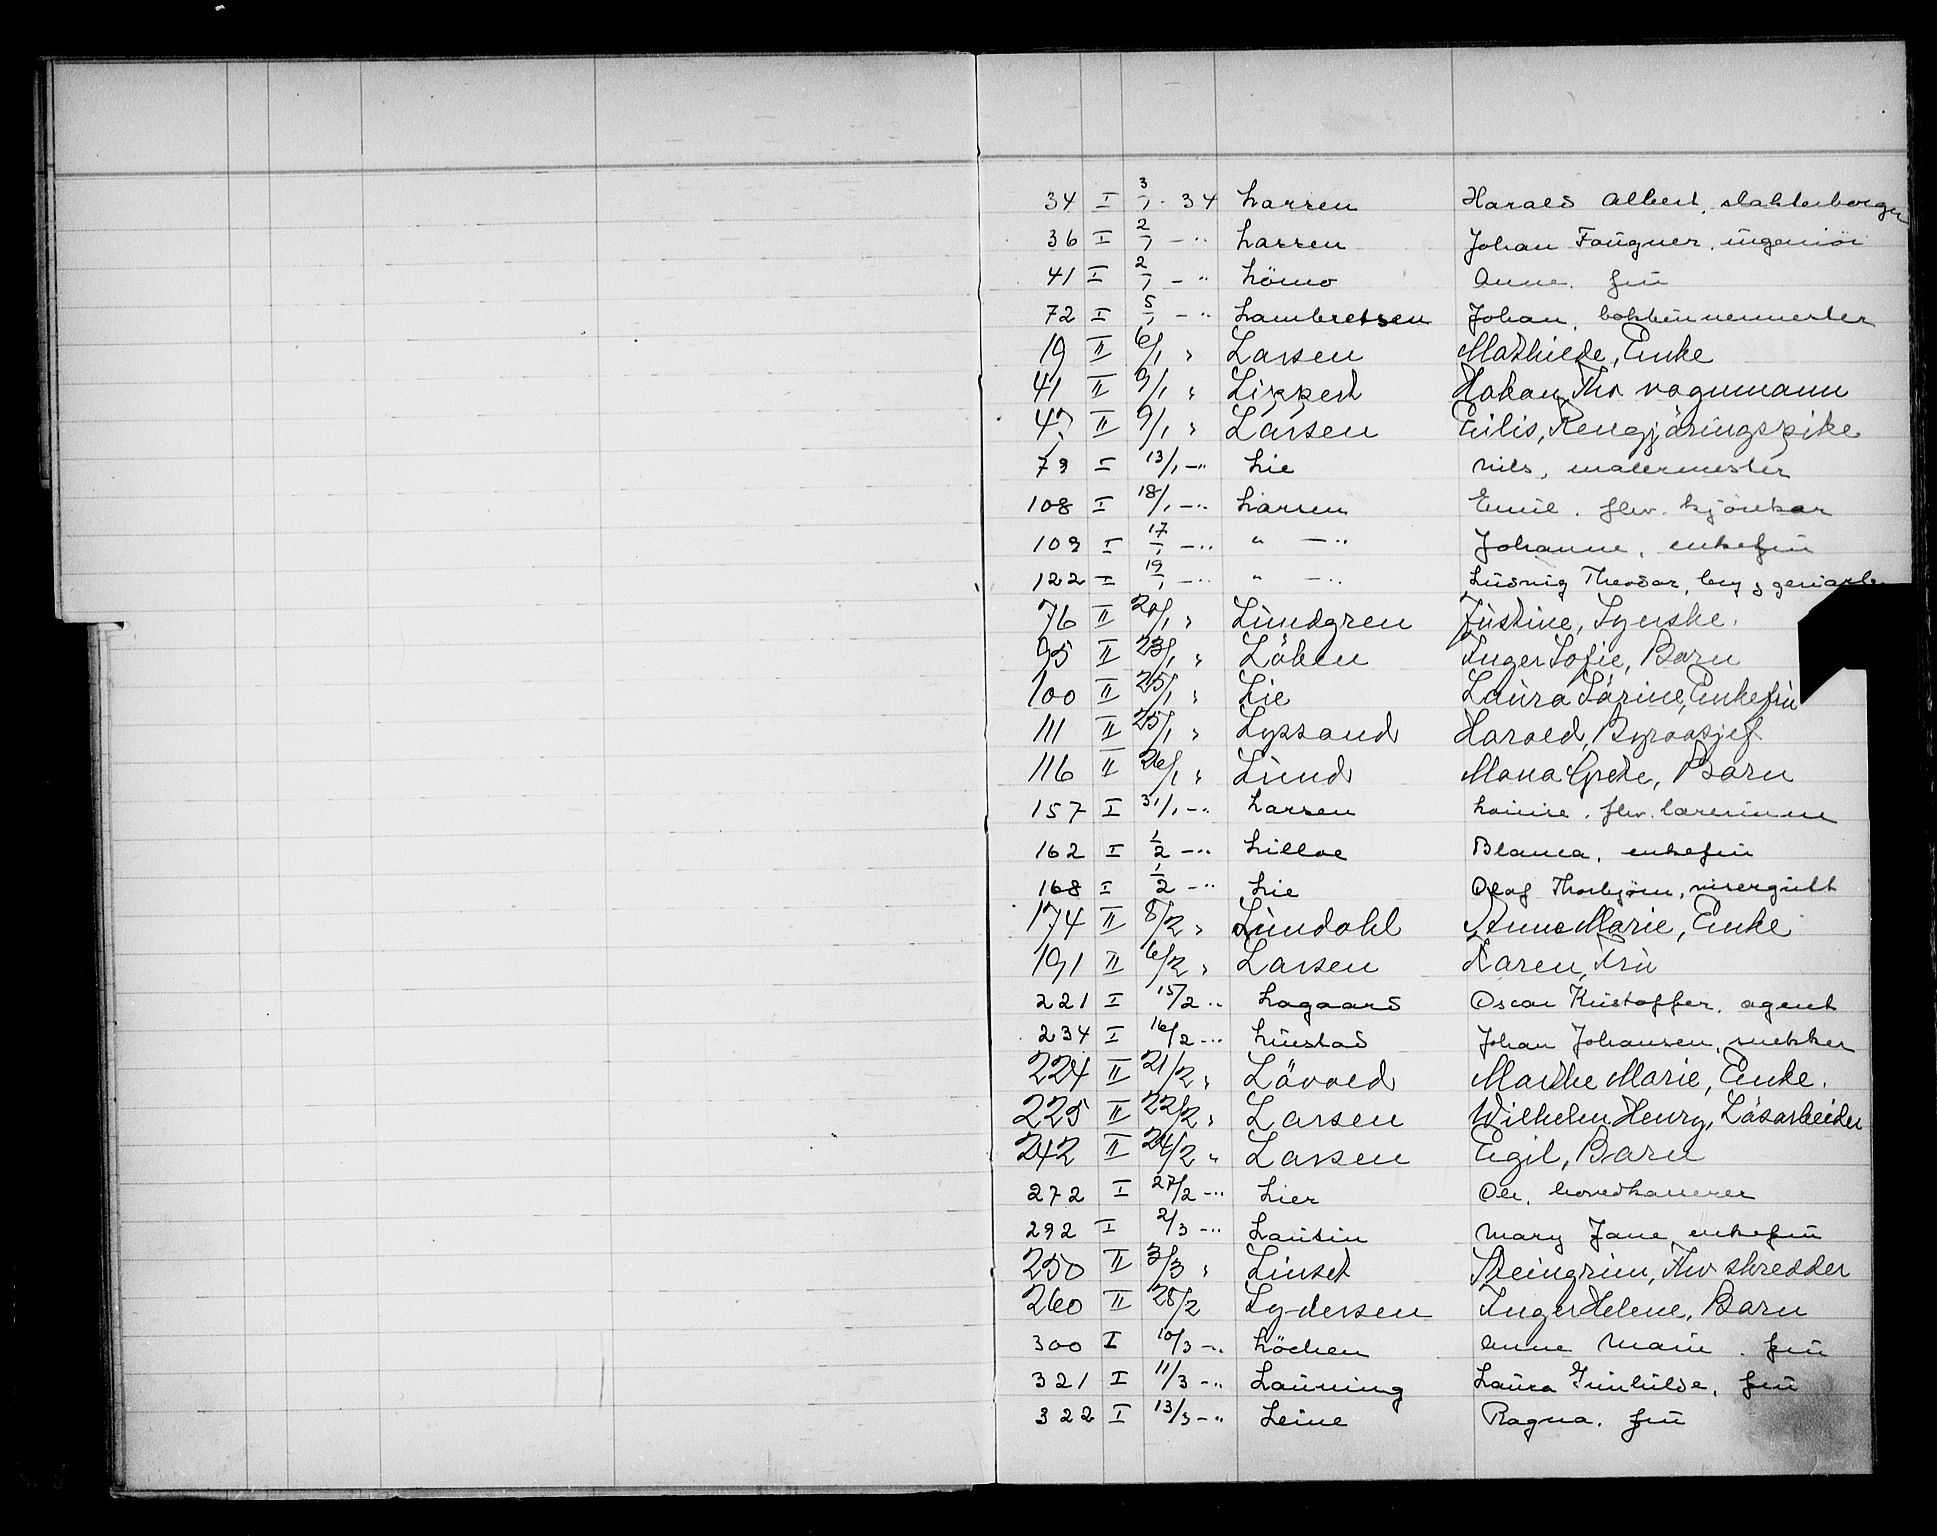 34 I 3/1 - 34 Larsen Harald Albert, slakterborger
36 I 2/1 - " Larsen Johan Fougner, ingeniør
41 I 2/1 - " Lömo Anne, frü
72 I 5/1 - " Lambretsen Johan,
19 II 6/1 " Larsen Mathilde, Enke
41 II 9/1 " Lippert Hakon, Thv vognmann
47 II 9/1 " Larsen Eilis, Rengjöringspike
79 I 13/1 - " Lie Nils, malermester
108 I 18/1 - " Larsen Emil, fhv. kjörekar
109 I 17/1 - " " - " Johanne, enkefrü
122 I 19/1 - " " - " Lüdvig Theodor,
76 II 20/1 " Lündgren Jüstine, Syerske.
95 II 23/1 " Löken Inger Sofie, Barn
100 II 25/1 " Lie Laüra Särine, Enkefrü
111 II 25/1 " Lyssand Harald, Byråsjef
116 II 26/1 " Lünd Mona Grete, Barn
157 I 31/1 - " Larsen Lovise, fhv. lærerinne
162 I 1/2 - " Lilloe Blanca, enkefrü
168 I 1/2 - " Lie Olaf Thorbjörn, visergutt
174 II 5/2 " Lündahl Anne Marie, Enke
191 II 6/2 " Larsen Karen, Frü
221 I 15/2 " Lagaard Oscar Kristoffer, agent
234 I 16/2 - " Linstad Johan Johansen, snekker
224 II 21/2 " Lövold Marthe Marie, Enke.
225 II 22/2 " Larsen Wilhelm Henry, Lösarbeider
242 II 24/2 " Larsen Egil, Barn
272 I 27/2 - " Lier Ole, hovedkasserer
292 I 2/3 - " Mary Jane, enkefrü
250 II 3/3 " Linset Steingrim, Fhv skredder
260 II 28/2 Lydersen Inger Helene, Barn
300 I 10/3 - " Löchen Anne Marie, frü
321 I 11/3 - " Laüning Laüra Günhilde, frü
322 I 13/3 - " Leine Ragna, frü